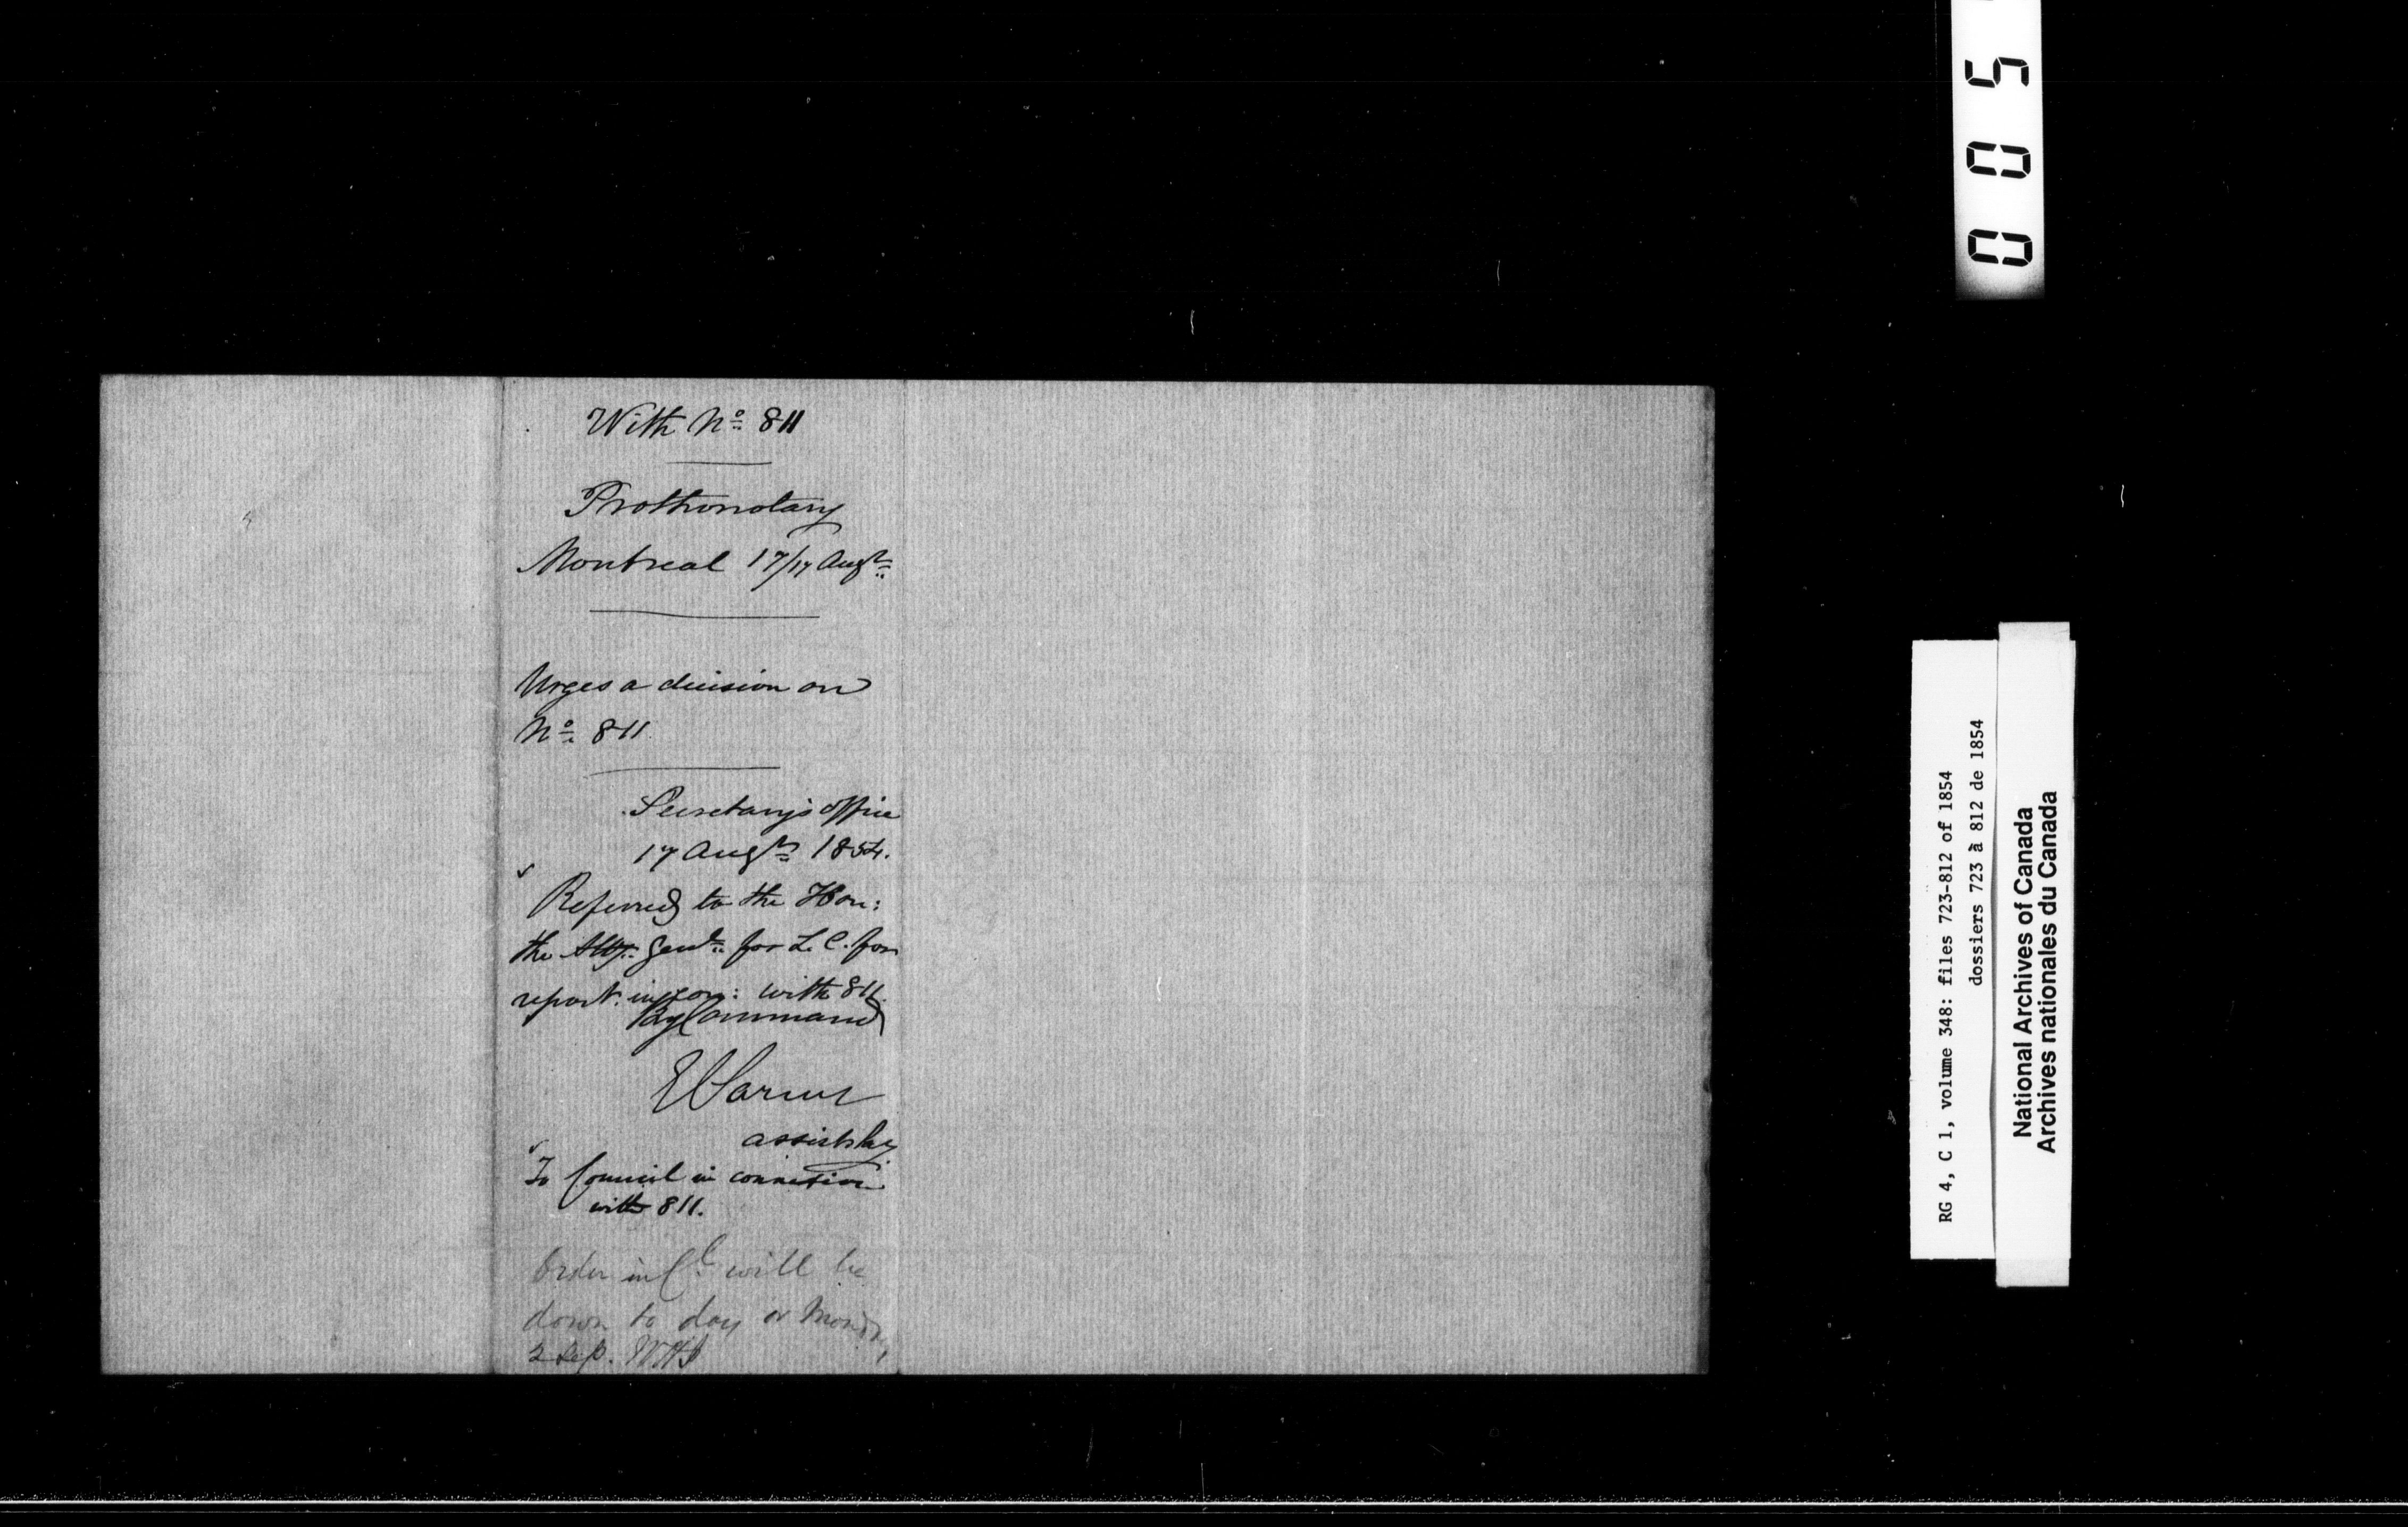 With No 811
Prothonotary
Montreal 17/17 Augt
Urges a decision on
No 811.
Secretary's office
17 Augt 1854.
Referred to the Hon:
the Atty. Genl: for L. C. for
report. in con: with 811.
By Command
E Parent
assist Secy
To Council in connexion
with 811.
Order in Cl. will be
down to day or Monday
2 Sep. WHL
0 0 5
RG 4, C 1, volume 348: files 723-812 of 1854
dossiers 723 à 812 de 1854
National Archives of Canada
Archives nationales du Canada